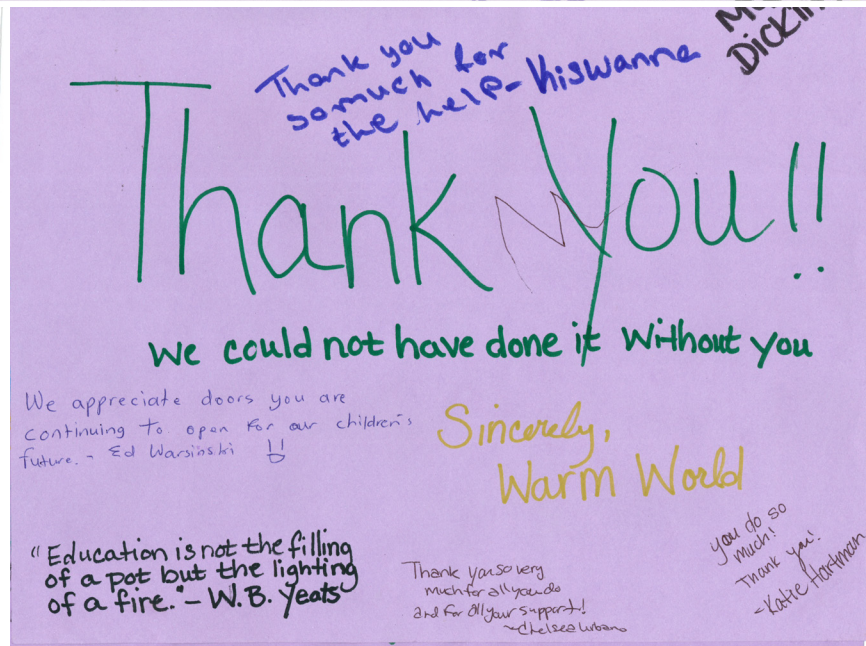 Dickin
Thank you
somuch for
the help- Kiswanna
Thank You!!
We could not have done it without you
We appreciate doors you are
continuing to open for our children's
future. - Ed Warsinski !!
Sincerely,
Warm World
"Education is not the filling
of a pot but the lighting
of a fire." - W.B. Yeats
Thank you so very
much for all you do
and for all your support!
~Chelsea Urbans
you do so
much!
Thank you!
-Katie Hartman